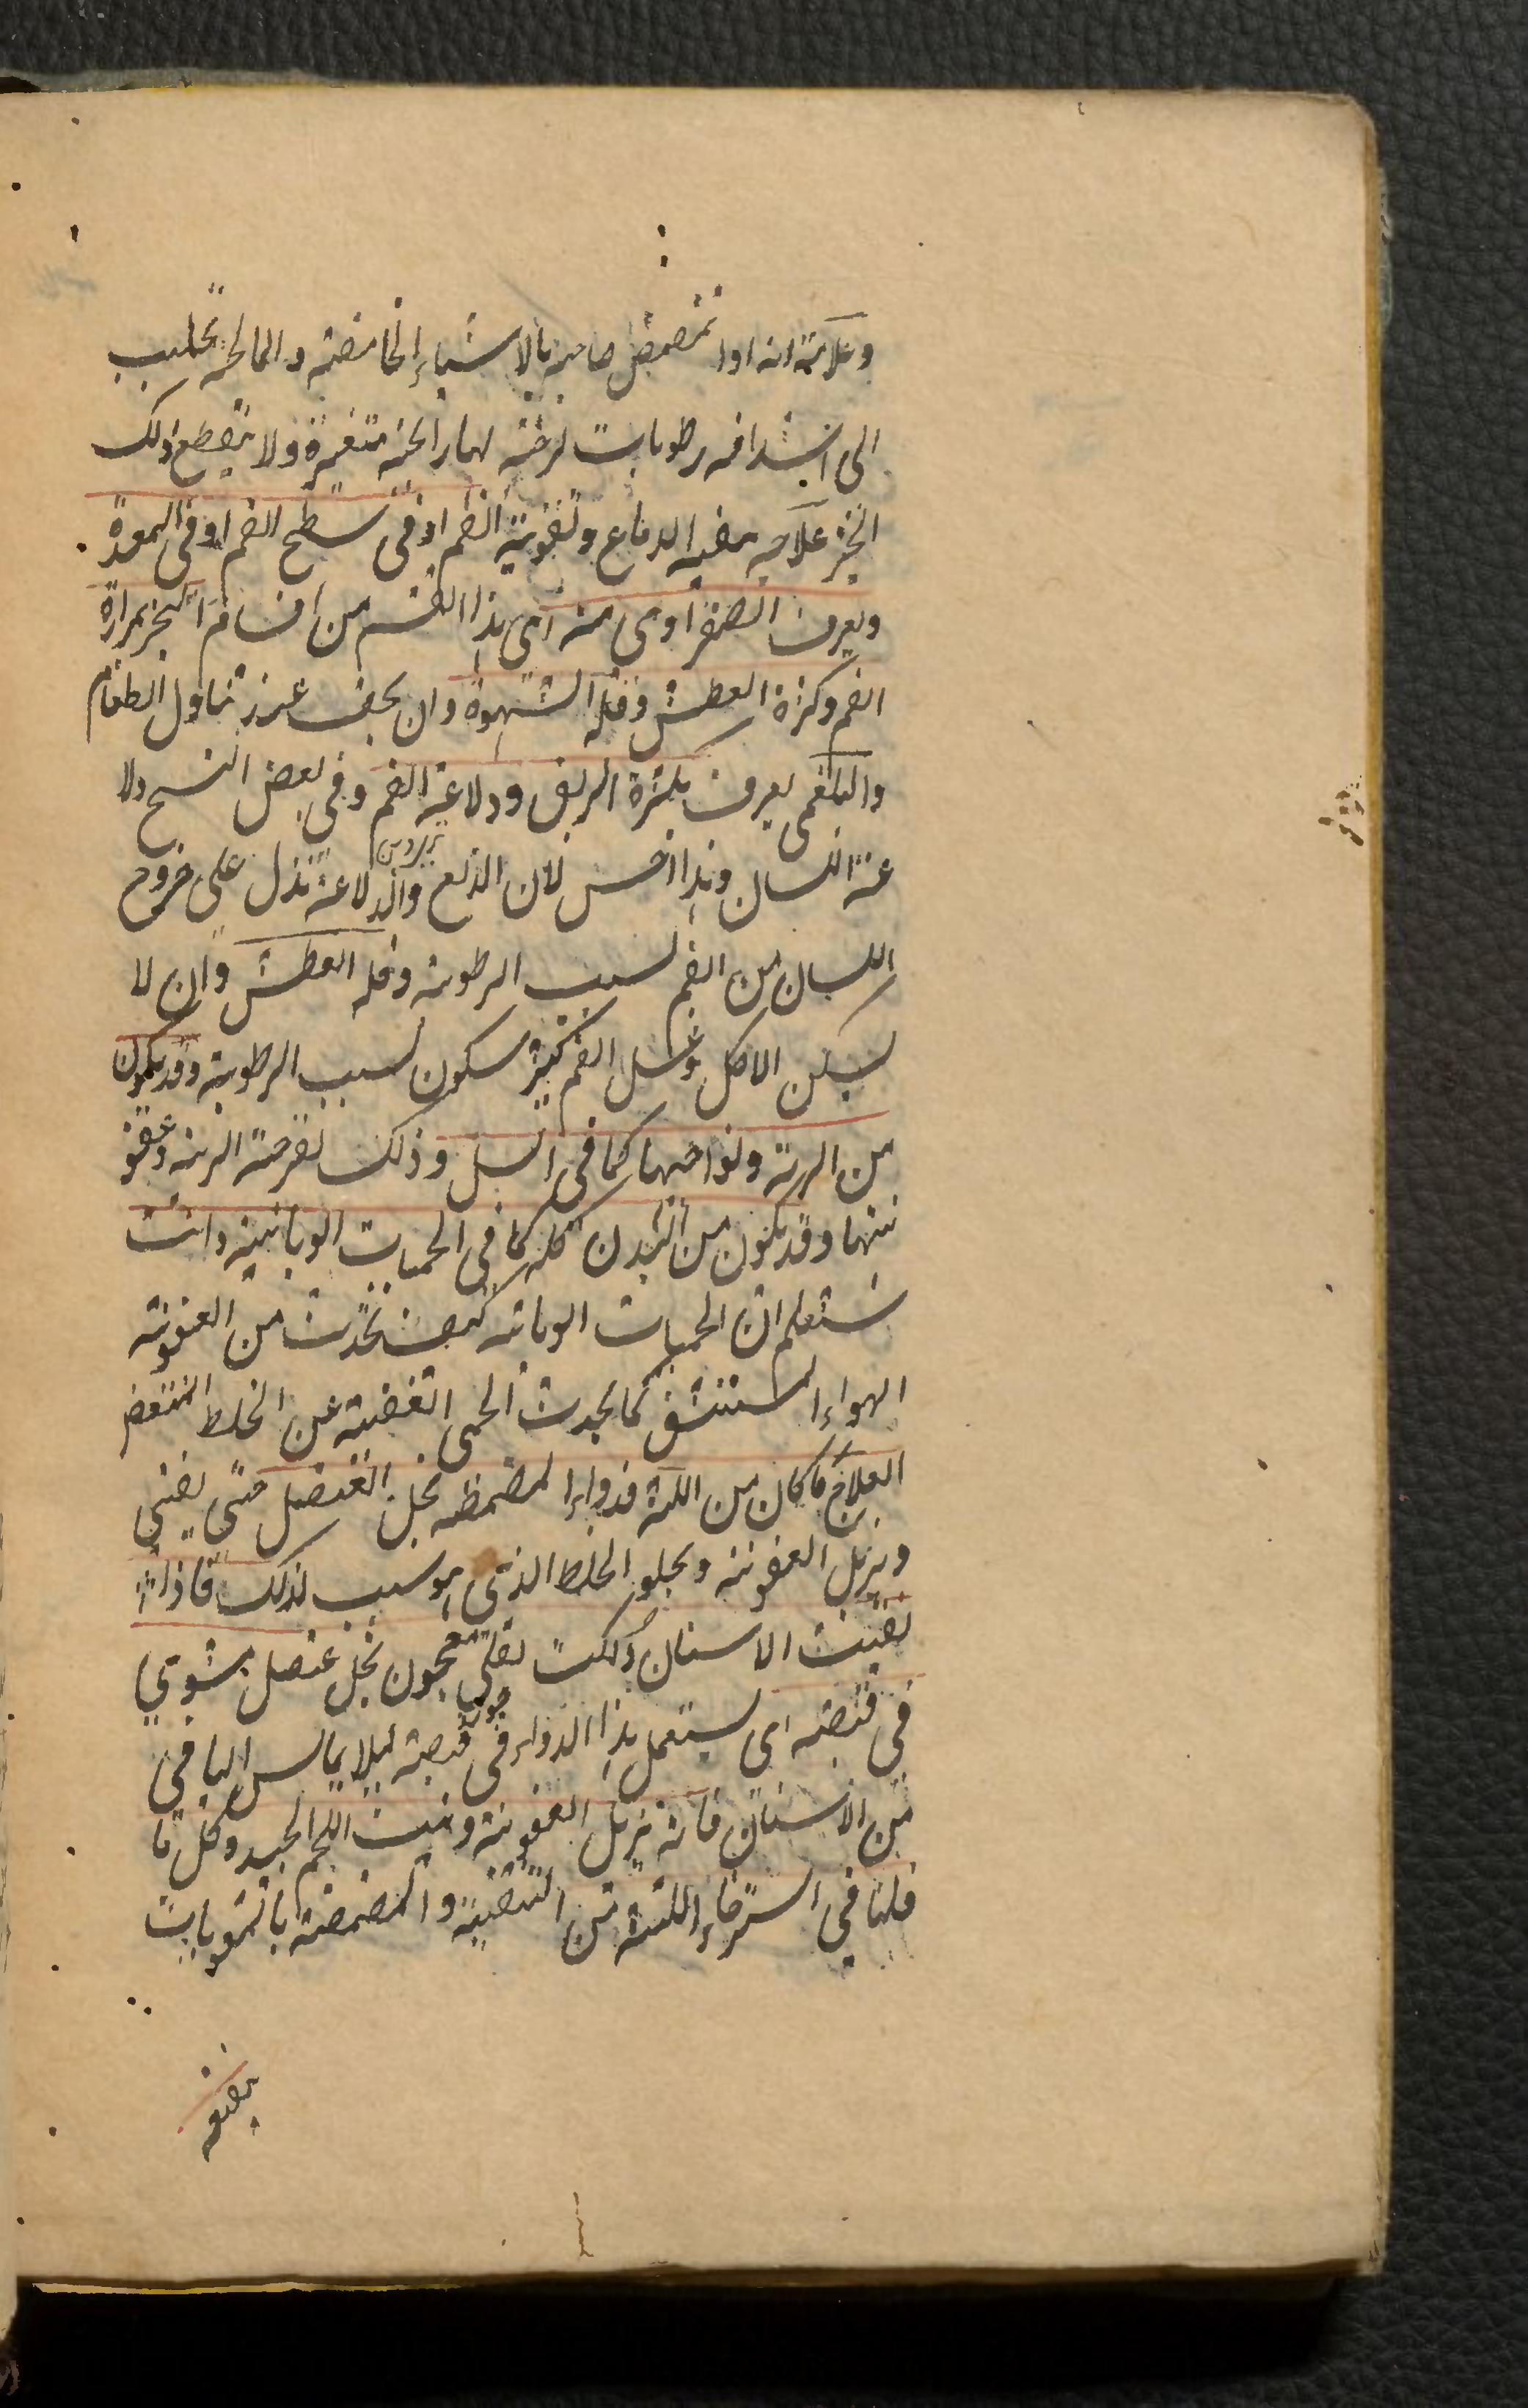 وعلامته انه اذا تمضمض صاحبه بالاشياء الحامضة والمالحة تحلب
الى اشداقه رطوبات لزجة لها رائحة متغيرة ولا ينقطع ذلك
البخر علاجه تنقية الدماغ وتقوية الفم او فى سطح الفم او فى المعدة
ويعرف الصفراوى منه اى هذا القسم من اقسام البخر بمرارة
الفم وكثرة العطش وقلة الشهوة وان يخف عند تناول الطعام
والبلغمى يعرف بكثرة الريق ودلاعة الفم وفى بعض النسخ دلا
عة اللسان وهذا احسن لان الدلع والدلاعة تدل على خروج
اللسان من الفم لسبب الرطوبة وقلة العطش وان لا
يسكن الاكل وغسل الفم كثير سكون لسبب الرطوبة وقد يكون
من الرية ونواحيها كما فى السل وذلك لقرحة الرية وعفو
نتها وقد يكون من البدن كله كما فى الحميات الوبائية وانت
ستعلم ان الحميات الوبائه كيف تحدث من العفونة
الهواء المستنشق كما يحدث الحمى العفنية عن الخلط المتعفن
العلاج ما كان من اللثة فدواءه المضمضه بخل العنصل حتى يفنى
ويزيل العفونة ويجلو الخلط الذى هو سبب لذلك فاذا
نقيت الاسنان دلكت بقلى معجون بخل عنصل مشوي
فى قصبة اى يستعمل هذا الدواء فى جوف قصبة ليلا يماس الباقى
من الاسنان فانه يزيل العفونة وينبت اللحم الجيد وكل ما
قلنا فى استرخاء اللثة من التنقية والمضمضة بالمقويات